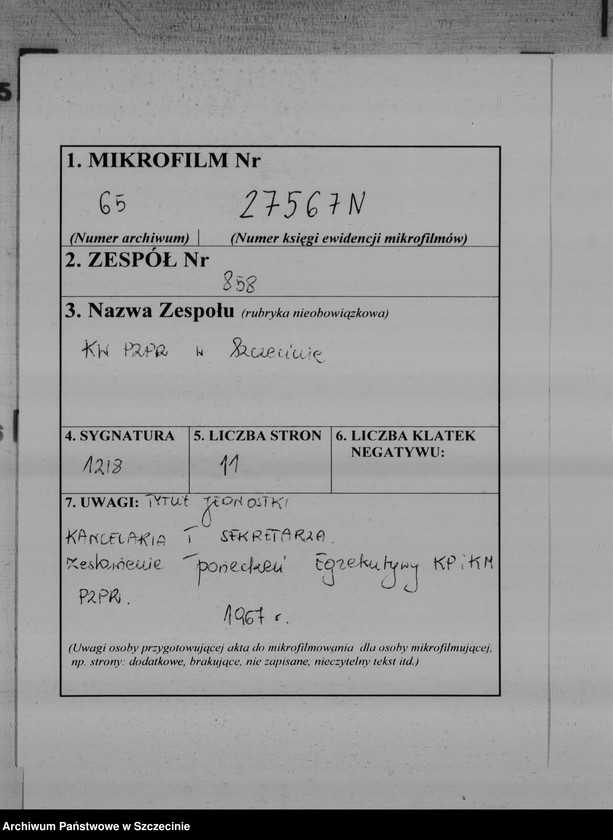 5
1. MIKROFILM Nr
65 27567N
(Numer archiwum) (Numer księgi ewidencji mikrofilmów)
2. ZESPÓŁ Nr
858
3. Nazwa Zespołu (rubryka nieobowiązkowa)
KW PZPR w Szczecinie
4. SYGNATURA 5. LICZBA STRON 6. LICZBA KLATEK
NEGATYWU:
1213 11
7. UWAGI: TYTUŁ JEDNOSTKI
KANCELARIA I SEKRETARZA.
Zestawienie posiedzeń Egzekutywy KP i KM
PZPR.
1967 r.
(Uwagi osoby przygotowującej akta do mikrofilmowania dla osoby mikrofilmującej,
np. strony: dodatkowe, brakujące, nie zapisane, nieczytelny tekst itd.)
Archiwum Państwowe w Szczecinie